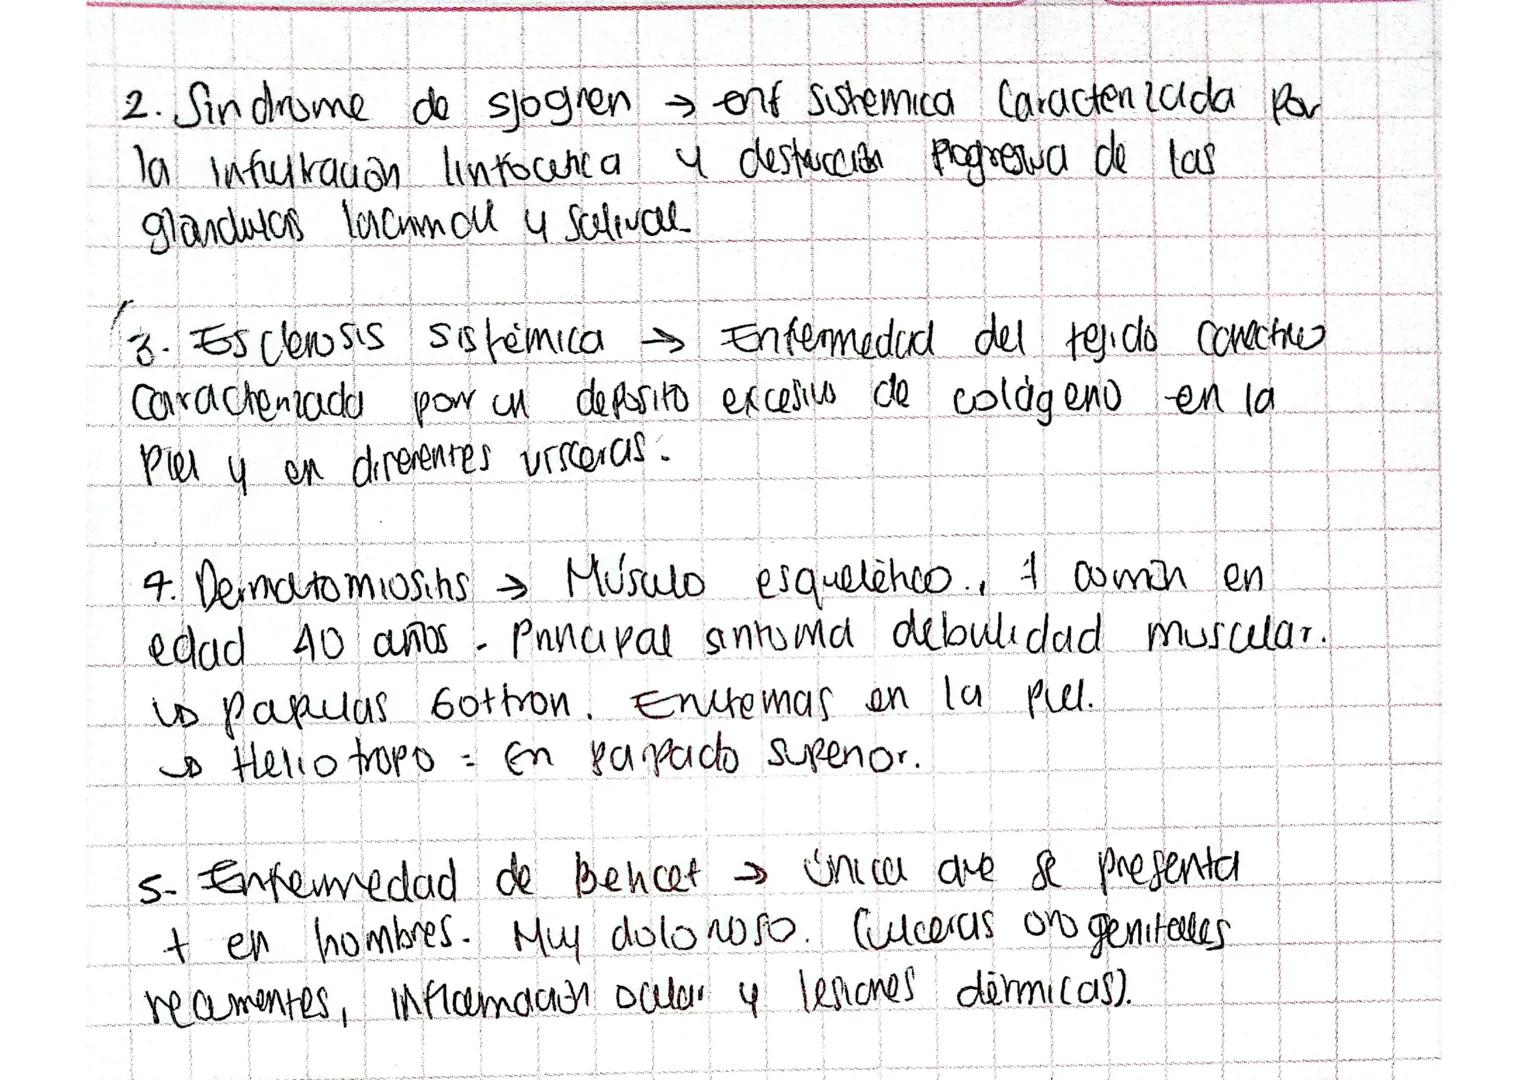 2. Sindrome de sjogren → enf sistemica caracterizada por
la infiltración linfocitica y destrucción progresiva de las
glandulas lacrimal y salival
3. Esclerosis sistémica → Enfermedad del tejido conectivo
caracterizada por un deposito excesivo de colágeno en la
piel y en diferentes visceras.
4. Dermatomiositis → Músculo esquelético., + común en
edad 40 años - Principal sintoma debilidad muscular.
↳ papulas Gottron. Eritemas en la piel.
↳ Heliotropo = En parpado superior.
5- Enfermedad de Behcet → única que se presenta
+ en hombres. Muy doloroso. (ulceras orogenitales
recurrentes, inflamación ocular y lesiones dérmicas).